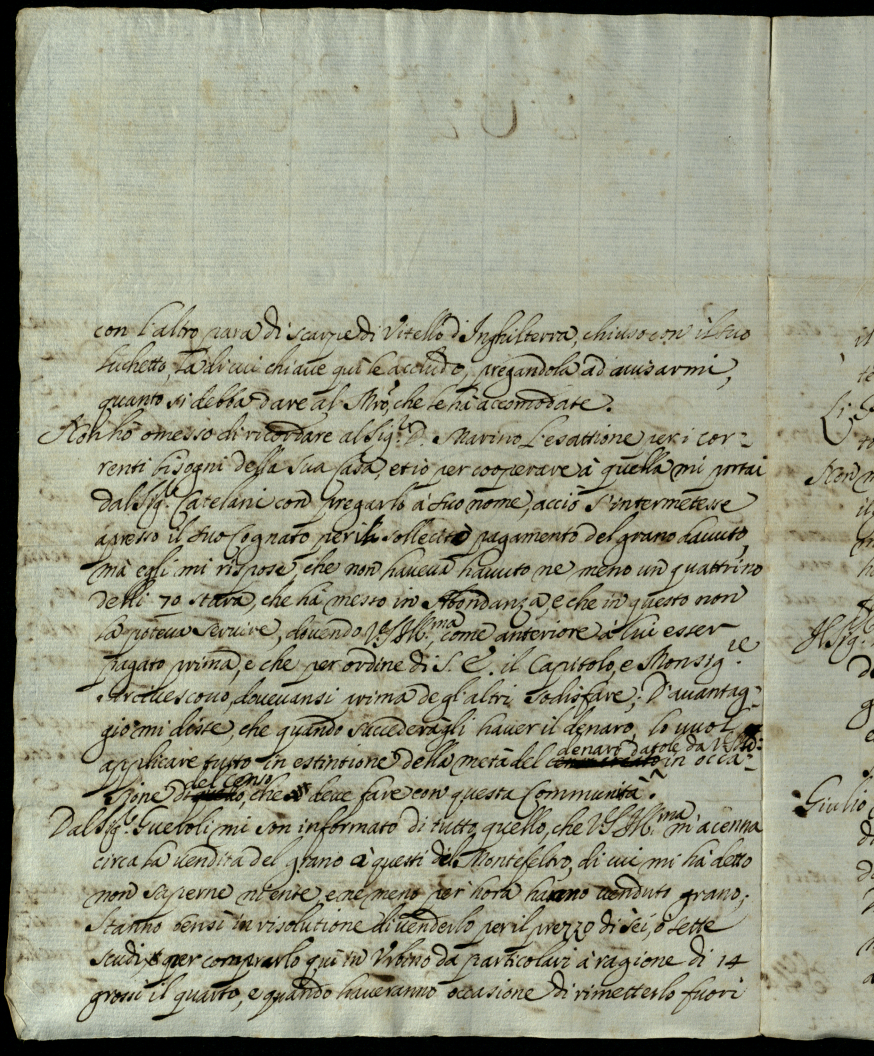 con l'altro para di scarpe di Vitello d'Inghilterra, chiuso con il suo
luchetto, la di cui chiave qui le accludo, pregandola ad avisarmi,
quanto si debba dare al Mro, che le hà accomodate.
Non hò omesso di ricordare al Sigr. D. Marino l'esattione per i cor-
renti bisogni della sua Casa, et io per cooperare à quella mi portai
dal Sigr. Catelani con pregarlo à suo nome, acciò s'intermetesse
apresso il suo Cognato per il sollecito pagamento del grano havuto,
mà egli mi rispose, che non haveva havuto ne meno un quattrino
delli 70 stara, che hà messo in Abondanza, e che in questo non
la poteva servire, dovendo V.S. Illma come anteriore à lui esser
pagato prima, e che per ordine di S. E. il Capitolo, e Monsigre
Arcivescovo dovevansi prima degl'altri sodisfare; D'avantag-
gio mi disse, che quando succederagli haver il denaro, lo vuol
applicare tutto in estintione della metà del denaro datole da V.S. Illma in occa-
sione del censo, che deve fare con questa Communità.
Dal Sigr. Gueboli mi son informato di tutto quello, che V.S. Illma m'acenna
circa la vendita del grano à questi del Montefeltro, di cui mi hà detto
non saperne niente, e ne meno per hora hanno venduto grano;
Stanno bensì in risolutione di venderlo per il prezzo di sei, o sette
scudi e per comprarlo quì in Urbino da particolari à ragione di 14
grossi il quarto, e quando haveranno occasione di rimetterlo fuori